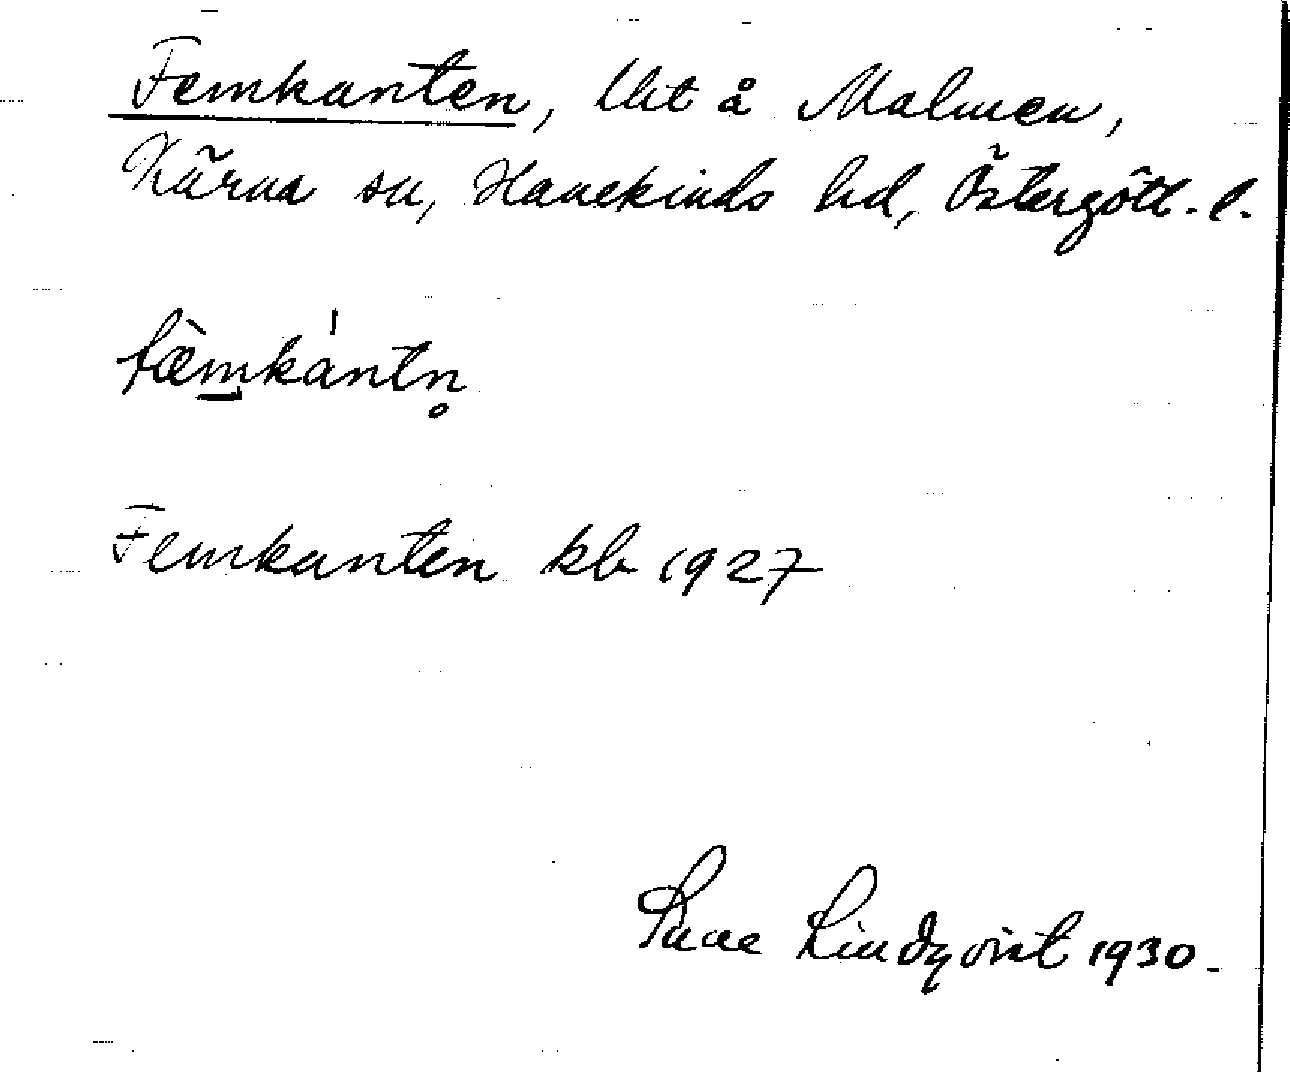 Femkanten, lht å Malmen,
Kärna sn, Hanekinds hd, Östergötl. l.
fæ̀mkántn̥
Femkanten kb 1927
Sune Lindqvist 1930.